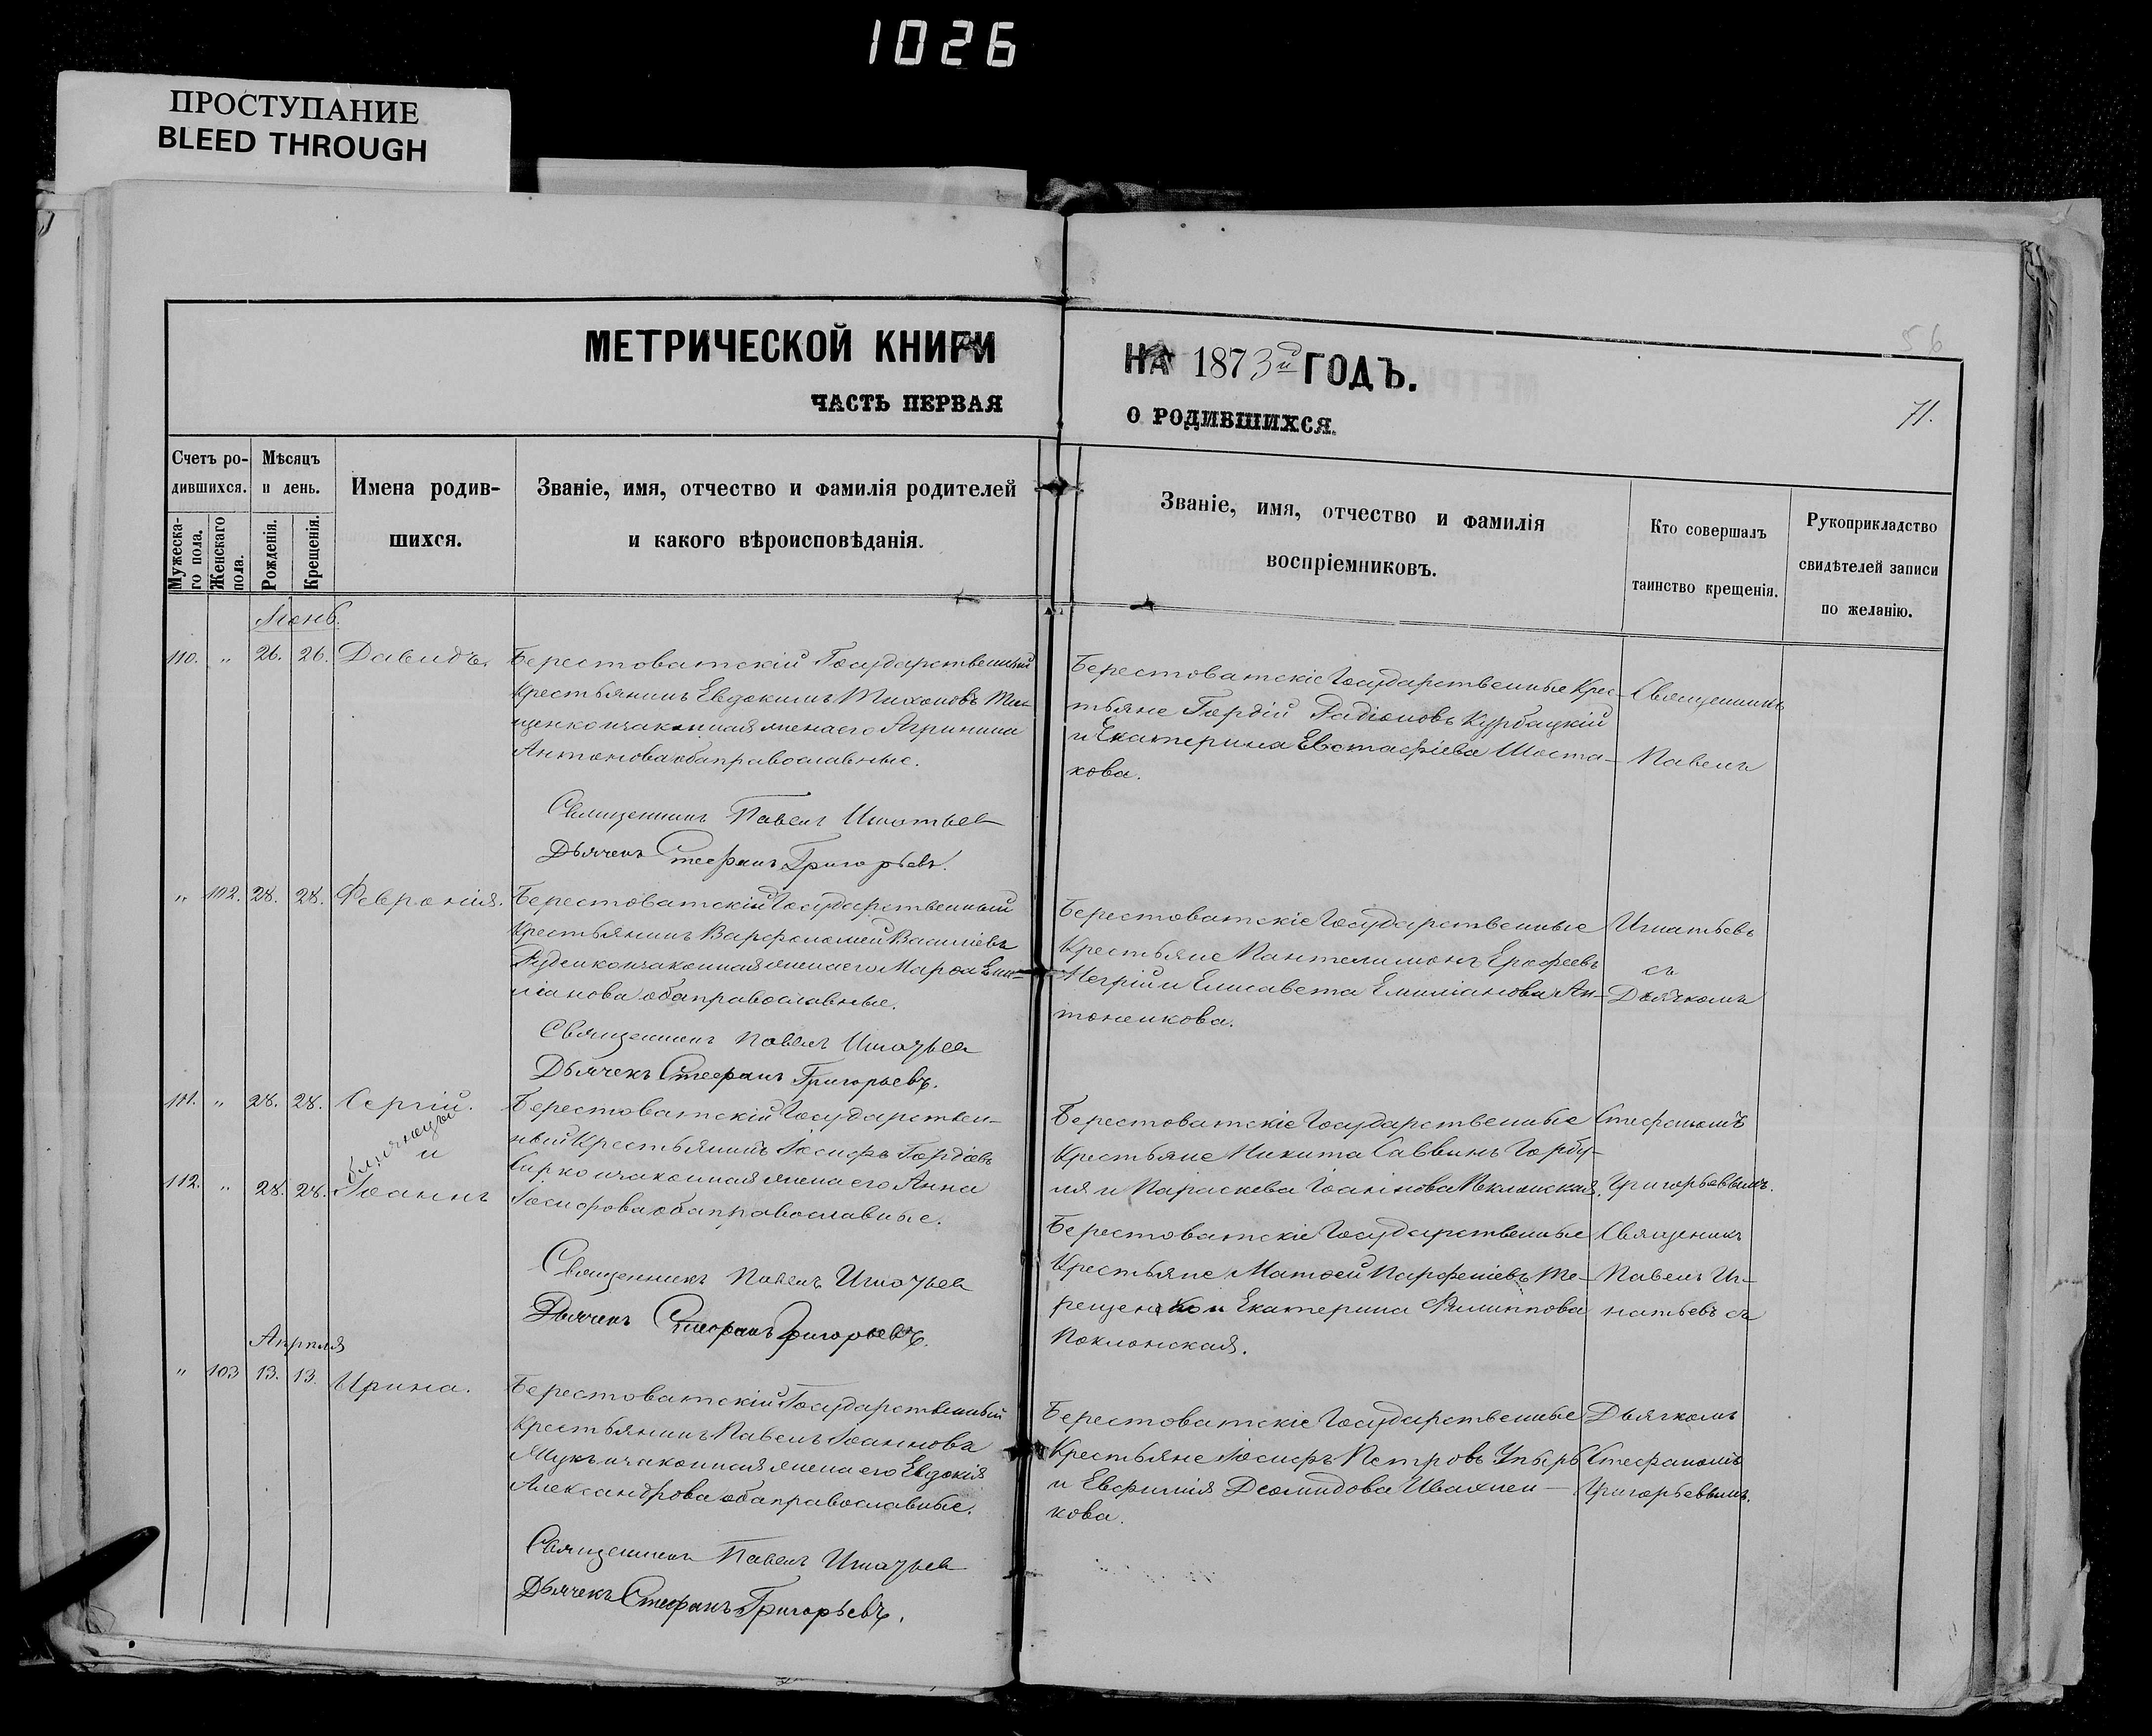 1026
ПРОСТУПАНИЕ
BLEED THROUGH
МЕТРИЧЕСКОЙ КНИГИ
ЧАСТЬ ПЕРВАЯ
НА 1873й ГОДЪ.
О РОДИВШИХСЯ.
56
71.
Счетъ ро-
дившихся.
Мужеска-
го пола.
Женскаго
пола.
Мѣсяцъ
и день.
Рожденія.
Крещенія.
Имена родив-
шихся.
Званіе, имя, отчество и фамилія родителей
и какого вѣроисповѣданія.
Званіе, имя, отчество и фамилія
воспріемниковъ.
Кто совершалъ
таинство крещенія.
Рукоприкладство
свидѣтелей записи
по желанію.
110. „ 26. 26. Давидъ.
Берестоватскій Государственный
Крестьянинъ Евдокимъ Тихоновъ
законная жена его Агрипина
Антонова оба православные.
Священникъ Павелъ Игнатьев
Дьячекъ Стефанъ Григорьевъ.
Берестоватскіе Государственные Крес-
тьяне Гордій Радіоновъ Курбацкій
и Екатерина Евстафіева Шоста-
кова.
Священникъ
Павелъ
„ 102. 28. 28. Февронія.
Берестоватскій Государственный
Крестьянинъ Варфоломей Василіевъ
Руденко и законная жена его Марфа Еми-
ліанова оба православные.
Священникъ Павелъ Игнатьев
Дьячекъ Стефанъ Григорьевъ.
Берестоватскіе Государственные
Крестьяне Пантелимонъ Ерофеевъ
и Елисавета Емиліанова Ан-
тоненкова.
Игнатьевъ
съ
Дьячкомъ
111. „ 28. 28. Сергій.
близнецы
и
112. „ 28. 28. Іоаннъ
Берестоватскій Государствен-
ный Крестьянинъ Іосифъ Гордіевъ
Сирко и законная жена его Анна
Іосифова оба православные.
Священникъ Павелъ Игнатьев
Дьячекъ Стефанъ Григорьевъ.
Берестоватскіе Государственные
Крестьяне Никита Саввинъ Горбу-
ля и Параскева Іоаннова Поклонская.
Стефаномъ
Григорьевымъ.
Берестоватскіе Государственные
Крестьяне Матфей Парфеніевъ Те-
рещенко и Екатерина Филиппова
Поклонская.
Священикъ
Павелъ Иг-
натьевъ съ
Апрѣля
„ 103 13. 13. Ирина.
Берестоватскій Государственный
Крестьянинъ Павелъ Іоанновъ
законная жена его Евдокія
Александрова оба православные.
Священникъ Павелъ Игнатьев
Дьячекъ Стефанъ Григорьевъ.
Берестоватскіе Государственные
Крестьяне Іосифъ Петровъ Упырь
и Евфимія Деомидова Ивахнен-
кова.
Дьячкомъ
Стефаномъ
Григорьевымъ.